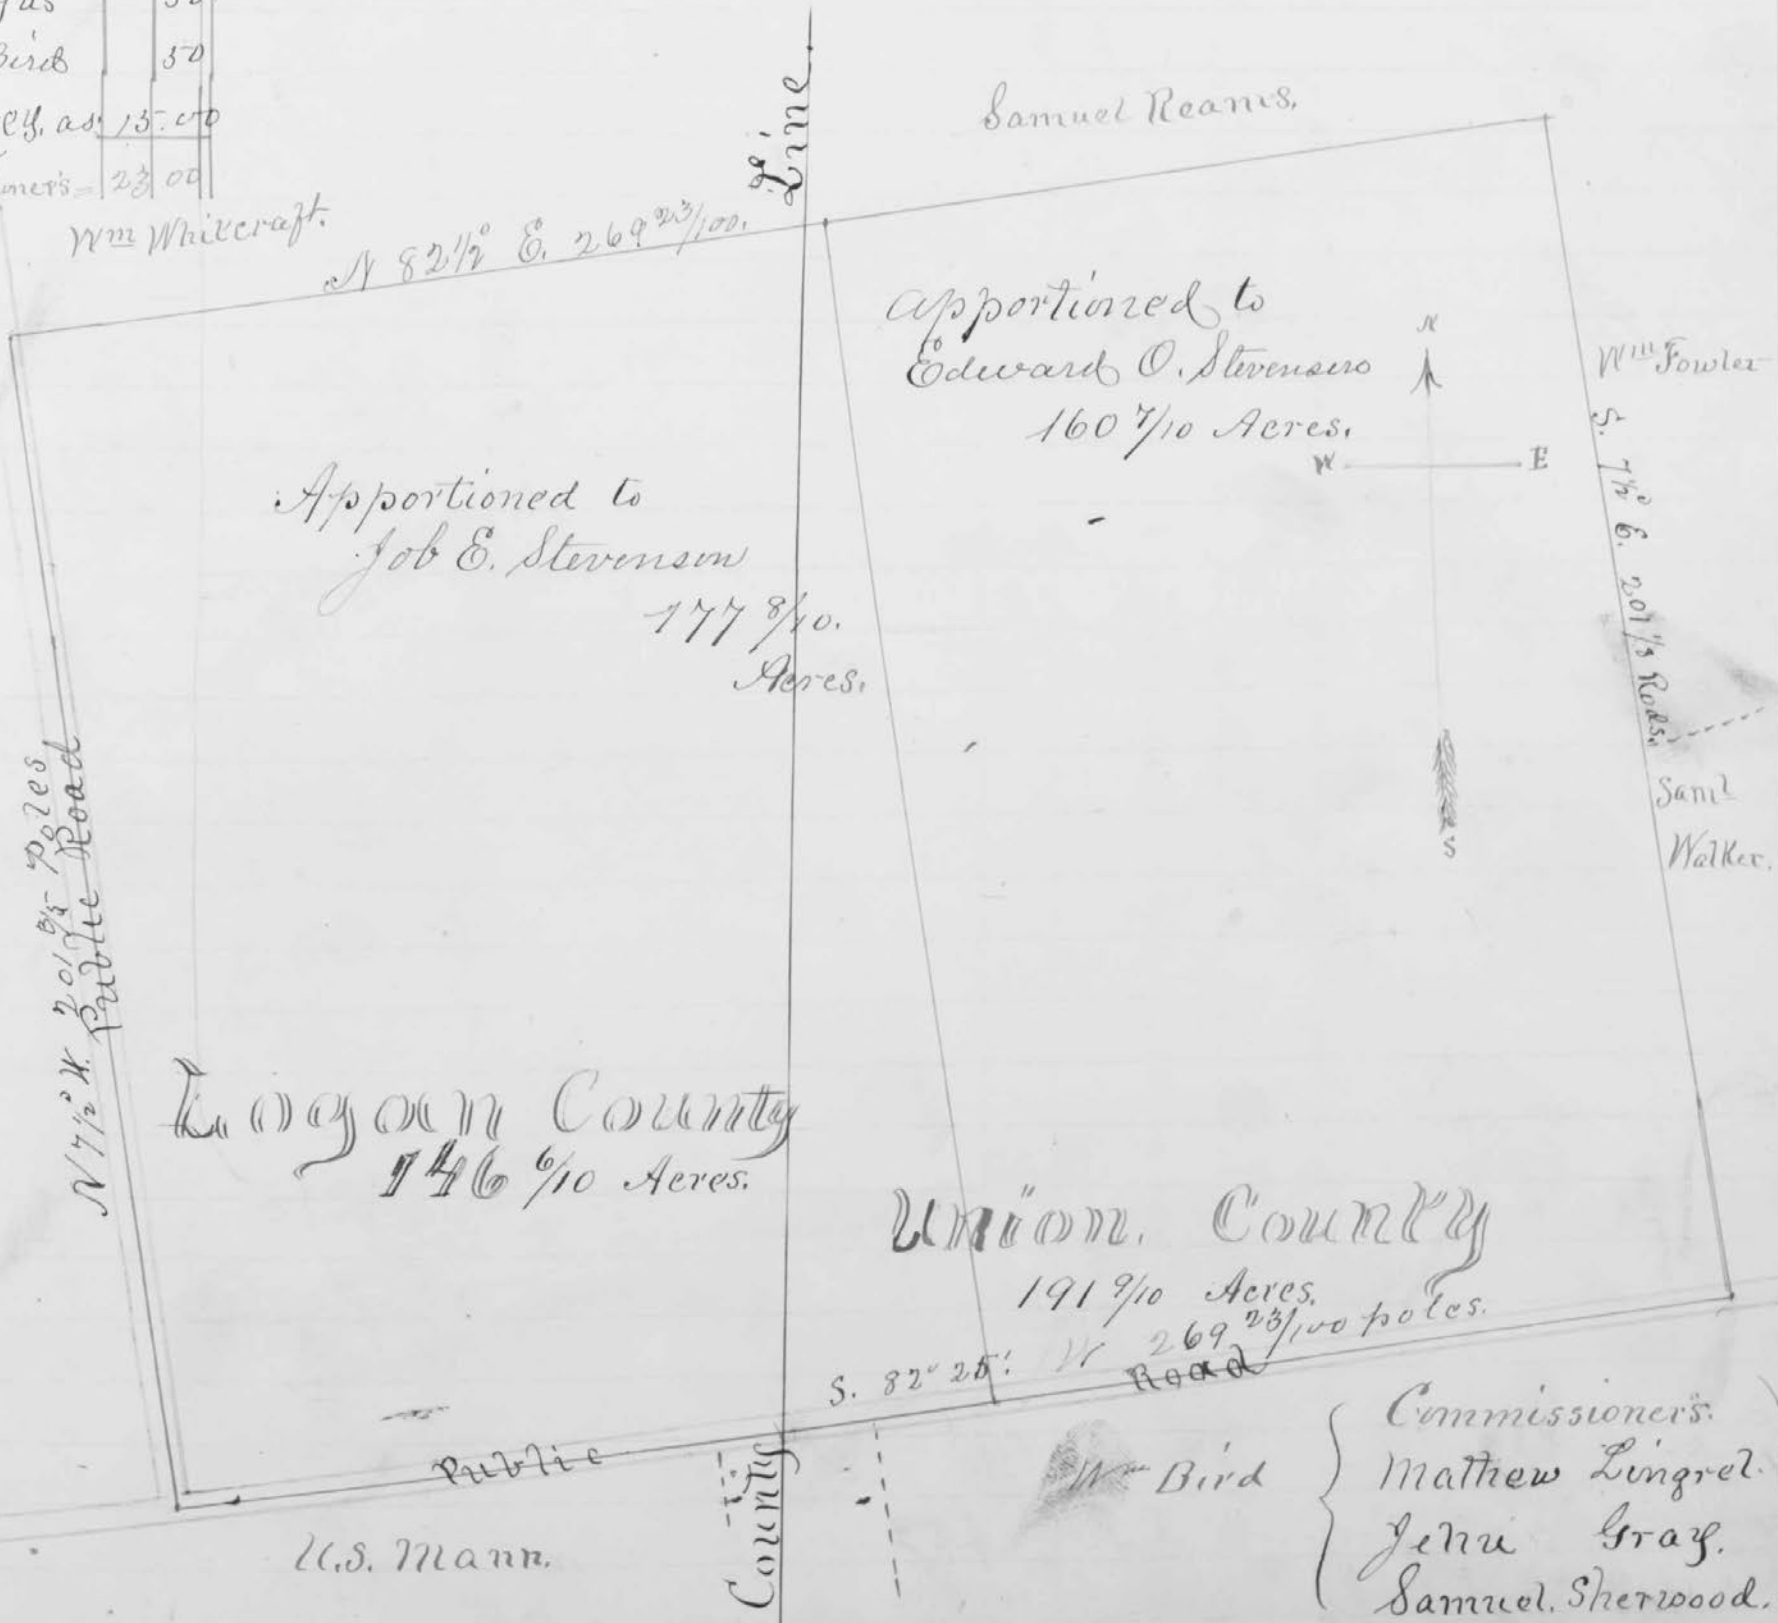 Bird 50
ey. as 15.00
23 00
Wm Whitcraft.
N 82 1/2° E. 269 23/100.
Line
Samuel Reams.
Apportioned to
Edward O. Stevenson
160 7/10 Acres.
N
W E
S
Wm Fowler
S. 7 1/2° E. 201 1/8 Rods.
Saml
Walker.
Apportioned to
Job E. Stevenson
177 8/10.
Acres.
N 7 1/2° W. 201 3/5 Poles
Public Road
Logan County
146 6/10 Acres.
Union. County
191 9/10 Acres.
S. 82° 25' W 269 23/100 poles.
Public Road
County
U.S. Mann.
Wm Bird
Commissioners.
Mathew Lingrel.
Gray.
Samuel. Sherwood.